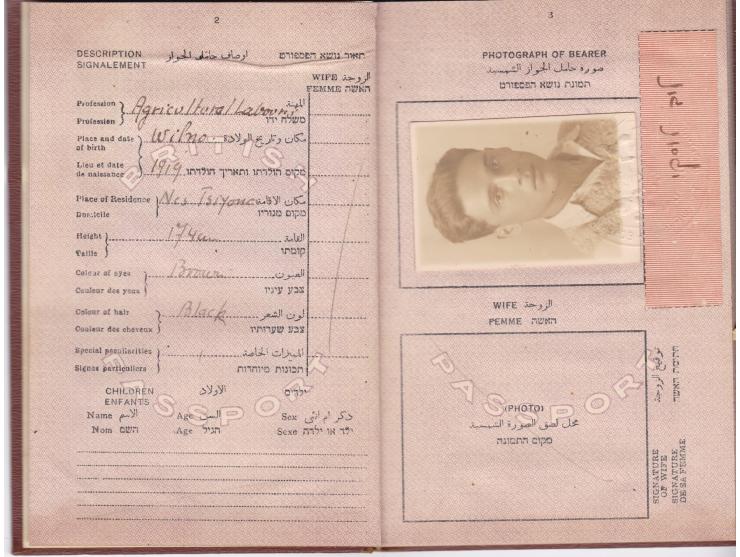 2
DESCRIPTION
SIGNALEMENT
اوصاف حامل الجواز
תאור נושא הפספורט
WIFE الزوجة
FEMME האשה
Profession
Profession
Agricultural Labourer
المهنة
משלח ידו
Place and date
of birth
Wilno
مكان وتاريخ الولادة
Lieu et date
de naissance
1919
מקום הולדתו ותאריך הולדתו
Place of Residence
Domicile
Nes Tsiyona
مكان الاقامة
מקום מגוריו
Height
Taille
174 cm
القامة
קומתו
Colour of eyes
Couleur des yeux
Brown
العيون
צבע עיניו
Colour of hair
Couleur des cheveux
Black
لون الشعر
צבע שערותיו
Special peculiarities
Signes particuliers
المميزات الخاصة
תכונות מיוחדות
CHILDREN الاولاد ילדים
ENFANTS
Name الاسم Age السن Sex ذكر ام انثى
Nom השם Age הגיל Sexe ילד או ילדה
BRITISH
PASSPORT
3
PHOTOGRAPH OF BEARER
صورة حامل الجواز الشمسية
תמונת נושא הפספורט
WIFE الزوجة
FEMME האשה
PASSPORT
(PHOTO)
محل لصق الصورة الشمسية
מקום התמונה
توقيع الزوجة
חתימת האשה
SIGNATURE
OF WIFE
SIGNATURE
DE SA FEMME